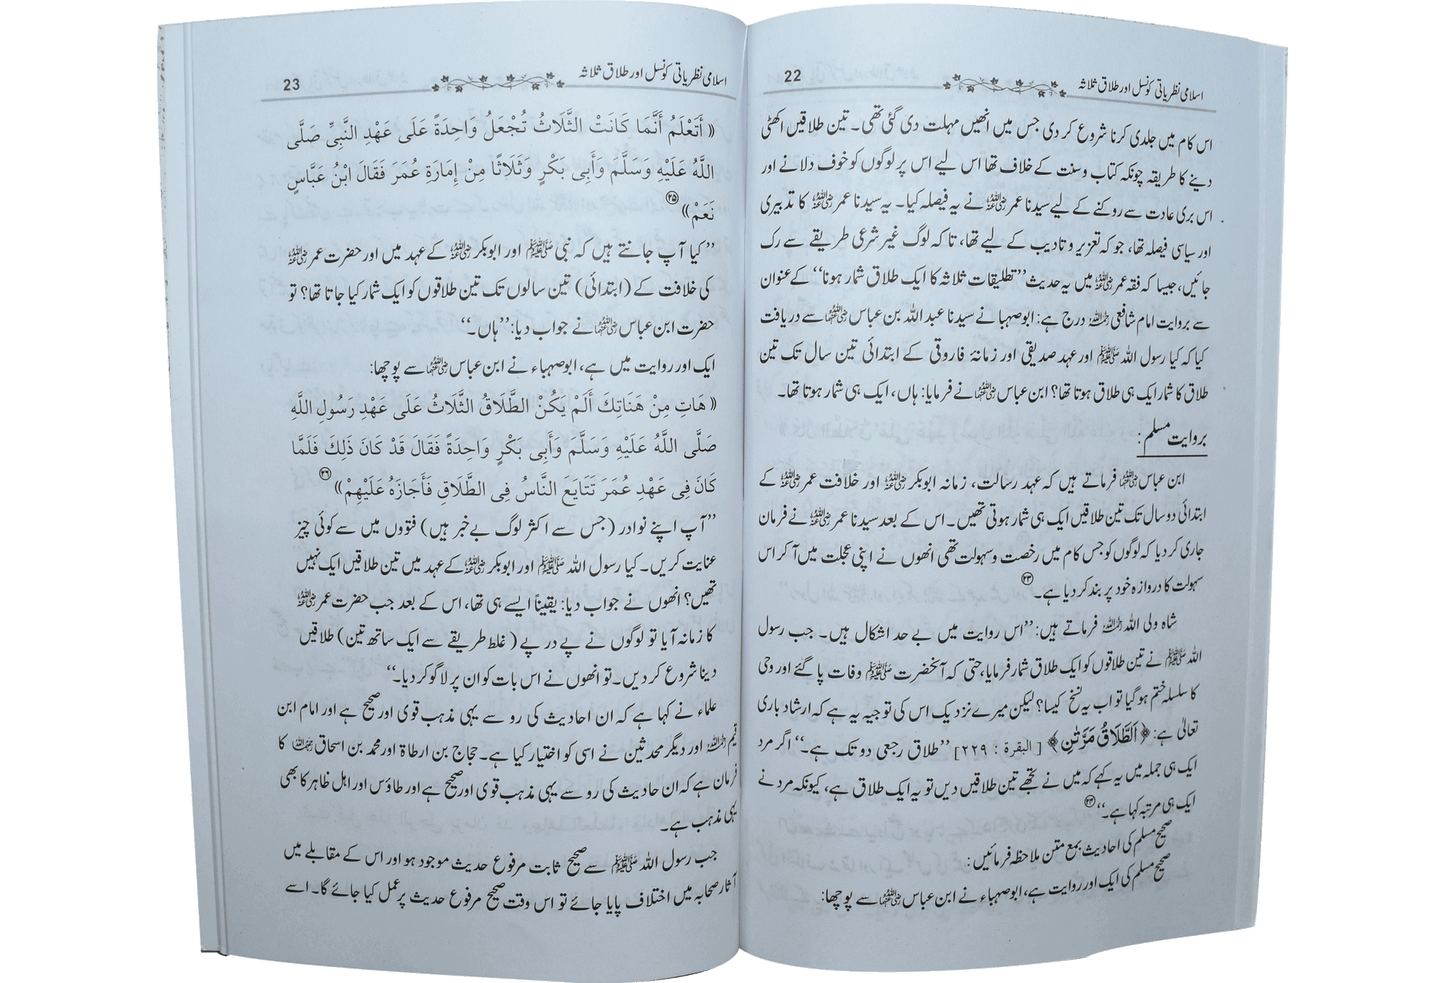 اسلامی نظریاتی کونسل اور طلاق ثلاثہ 22
اس کام میں جلدی کرنا شروع کر دی جس میں انھیں مہلت دی گئی تھی۔ تین طلاقیں اکٹھی
دینے کا طریقہ چونکہ کتاب وسنت کے خلاف تھا اس لیے اس پر لوگوں کو خوف دلانے اور
اس بری عادت سے روکنے کے لیے سیدنا عمر رضی اللہ عنہ نے یہ فیصلہ کیا۔ یہ سیدنا عمر رضی اللہ عنہ کا تدبیری
اور سیاسی فیصلہ تھا، جو کہ تعزیر و تادیب کے لیے تھا، تا کہ لوگ غیر شرعی طریقے سے رک
جائیں، جیسا کہ فقہ عمر رضی اللہ عنہ میں یہ حدیث ’’تطلیقات ثلاثہ کا ایک طلاق شمار ہونا‘‘ کے عنوان
سے بروایت امام شافعی رحمہ اللہ درج ہے: ابوصہبا نے سیدنا عبد اللہ بن عباس رضی اللہ عنہما سے دریافت
کیا کہ کیا رسول اللہ ﷺ اور عہد صدیقی اور زمانۂ فاروقی کے ابتدائی تین سال تک تین
طلاق کا شمار ایک ہی طلاق ہوتا تھا؟ ابن عباس رضی اللہ عنہما نے فرمایا: ہاں، ایک ہی شمار ہوتا تھا۔
بروایت مسلم:
ابن عباس رضی اللہ عنہما فرماتے ہیں کہ عہد رسالت، زمانہ ابوبکر رضی اللہ عنہ اور خلافت عمر رضی اللہ عنہ کے
ابتدائی دو سال تک تین طلاقیں ایک ہی شمار ہوتی تھیں۔ اس کے بعد سیدنا عمر رضی اللہ عنہ نے فرمان
جاری کر دیا کہ لوگوں کو جس کام میں رخصت وسہولت تھی انھوں نے اپنی عجلت میں آ کر اس
سہولت کا دروازہ خود پر بند کر دیا ہے۔ ㉓
شاہ ولی اللہ رحمہ اللہ فرماتے ہیں: ’’اس روایت میں بے حد اشکال ہیں۔ جب رسول
اللہ ﷺ نے تین طلاقوں کو ایک طلاق شمار فرمایا، حتی کہ آنحضرت ﷺ وفات پا گئے اور وحی
کا سلسلہ ختم ہو گیا تو اب یہ نسخ کیسا؟ لیکن میرے نزدیک اس کی توجیہ یہ ہے کہ ارشاد باری
تعالیٰ ہے: ﴿اَلطَّلَاقُ مَرَّتٰنِ﴾ [البقرة : ۲۲۹] ’’طلاق رجعی دو تک ہے۔‘‘ اگر مرد
ایک ہی جملہ میں یہ کہے کہ میں نے تجھے تین طلاقیں دیں تو یہ ایک طلاق ہے، کیونکہ مرد نے
ایک ہی مرتبہ کہا ہے۔‘‘ ㉔
صحیح مسلم کی احادیث بمع متن ملاحظہ فرمائیں:
صحیح مسلم کی ایک اور روایت ہے، ابوصہباء نے ابن عباس رضی اللہ عنہما سے پوچھا:
اسلامی نظریاتی کونسل اور طلاق ثلاثہ 23
«أَتَعْلَمُ أَنَّمَا كَانَتْ الثَّلَاثُ تُجْعَلُ وَاحِدَةً عَلَى عَهْدِ النَّبِيِّ صَلَّى
اللَّهُ عَلَيْهِ وَسَلَّمَ وَأَبِى بَكْرٍ وَثَلَاثًا مِنْ إِمَارَةِ عُمَرَ فَقَالَ ابْنُ عَبَّاسٍ
نَعَمْ» ㉕
’’کیا آپ جانتے ہیں کہ نبی ﷺ اور ابوبکر رضی اللہ عنہ کے عہد میں اور حضرت عمر رضی اللہ عنہ
کی خلافت کے (ابتدائی) تین سالوں تک تین طلاقوں کو ایک شمار کیا جاتا تھا؟ تو
حضرت ابن عباس رضی اللہ عنہما نے جواب دیا: ’’ہاں۔‘‘
ایک اور روایت میں ہے، ابوصہباء نے ابن عباس رضی اللہ عنہما سے پوچھا:
«هَاتِ مِنْ هَنَاتِكَ أَلَمْ يَكُنْ الطَّلَاقُ الثَّلَاثُ عَلَى عَهْدِ رَسُولِ اللَّهِ
صَلَّى اللَّهُ عَلَيْهِ وَسَلَّمَ وَأَبِى بَكْرٍ وَاحِدَةً فَقَالَ قَدْ كَانَ ذَلِكَ فَلَمَّا
كَانَ فِى عَهْدِ عُمَرَ تَتَايَعَ النَّاسُ فِى الطَّلَاقِ فَأَجَازَهُ عَلَيْهِمْ» ㉖
’’آپ اپنے نوادر (جس سے اکثر لوگ بے خبر ہیں) فتوں میں سے کوئی چیز
عنایت کریں۔ کیا رسول اللہ ﷺ اور ابوبکر رضی اللہ عنہ کے عہد میں تین طلاقیں ایک نہیں
تھیں؟ انھوں نے جواب دیا: یقیناً ایسے ہی تھا، اس کے بعد جب حضرت عمر رضی اللہ عنہ
کا زمانہ آیا تو لوگوں نے پے در پے (غلط طریقے سے ایک ساتھ تین) طلاقیں
دینا شروع کر دیں۔ تو انھوں نے اس بات کو ان پر لاگو کر دیا۔‘‘
علماء نے کہا ہے کہ ان احادیث کی رو سے یہی مذہب قوی اور صحیح ہے اور امام ابن
قیم رحمہ اللہ اور دیگر محدثین نے اسی کو اختیار کیا ہے۔ حجاج بن ارطاة اور محمد بن اسحاق رحمہما اللہ کا
فرمان ہے کہ ان حادیث کی رو سے یہی مذہب قوی اور صحیح ہے اور طاؤس اور اہل ظاہر کا بھی
یہی مذہب ہے۔
جب رسول اللہ ﷺ سے صحیح ثابت مرفوع حدیث موجود ہو اور اس کے مقابلے میں
آثار صحابہ میں اختلاف پایا جائے تو اس وقت صحیح مرفوع حدیث پر عمل کیا جائے گا۔ اسے